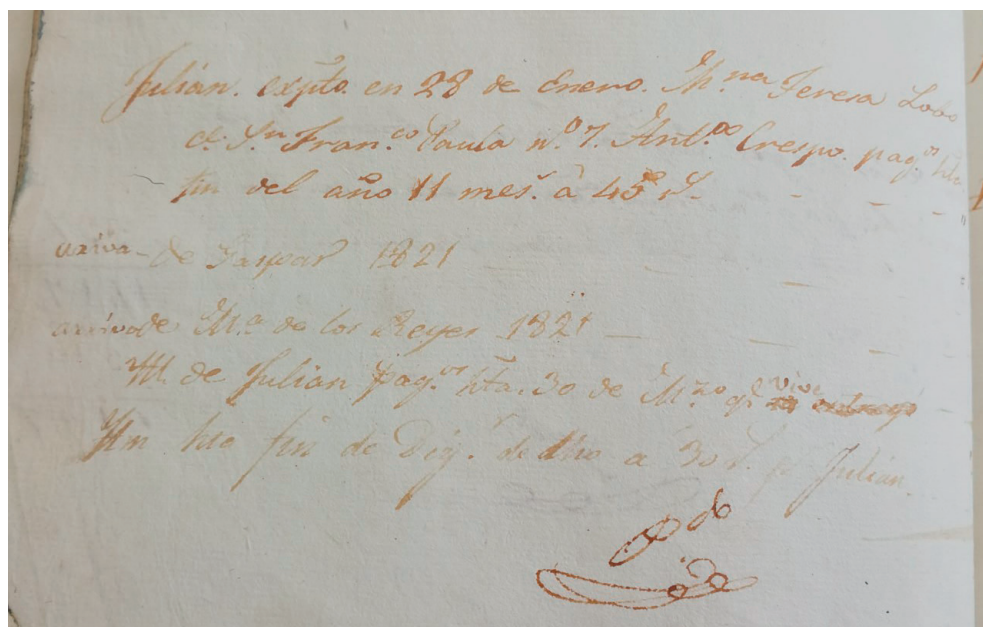 Julian. expto. en 28 de Enero. M.na Teresa Lobo
c. Sn Fran.co Paula n.o 7. Ant.o Crespo. pag.os hta
fin del año 11 mes.s à 45 r.s
arriva - de Gaspar 1821
arriva de M.a de los Reyes 1821
Ytt. de Julian pag.os hta. 30 de M.zo q.e vive
Ytt. hta fin de Diz.e de dho a 30 r. Julian.